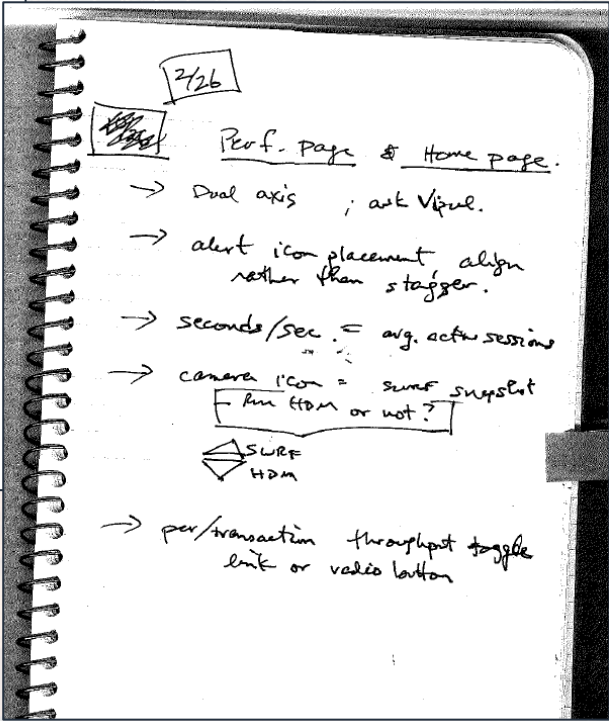 2/26
Perf. page & Home page.
→ Dual axis ; ask Vipul.
→ alert icon placement, align
rather than stagger.
→ seconds/sec. = avg. active sessions
→ camera icon = SWRF snapshot
Run HDM or not?
SWRF
HDM
→ per/transaction throughput toggle
link or radio button